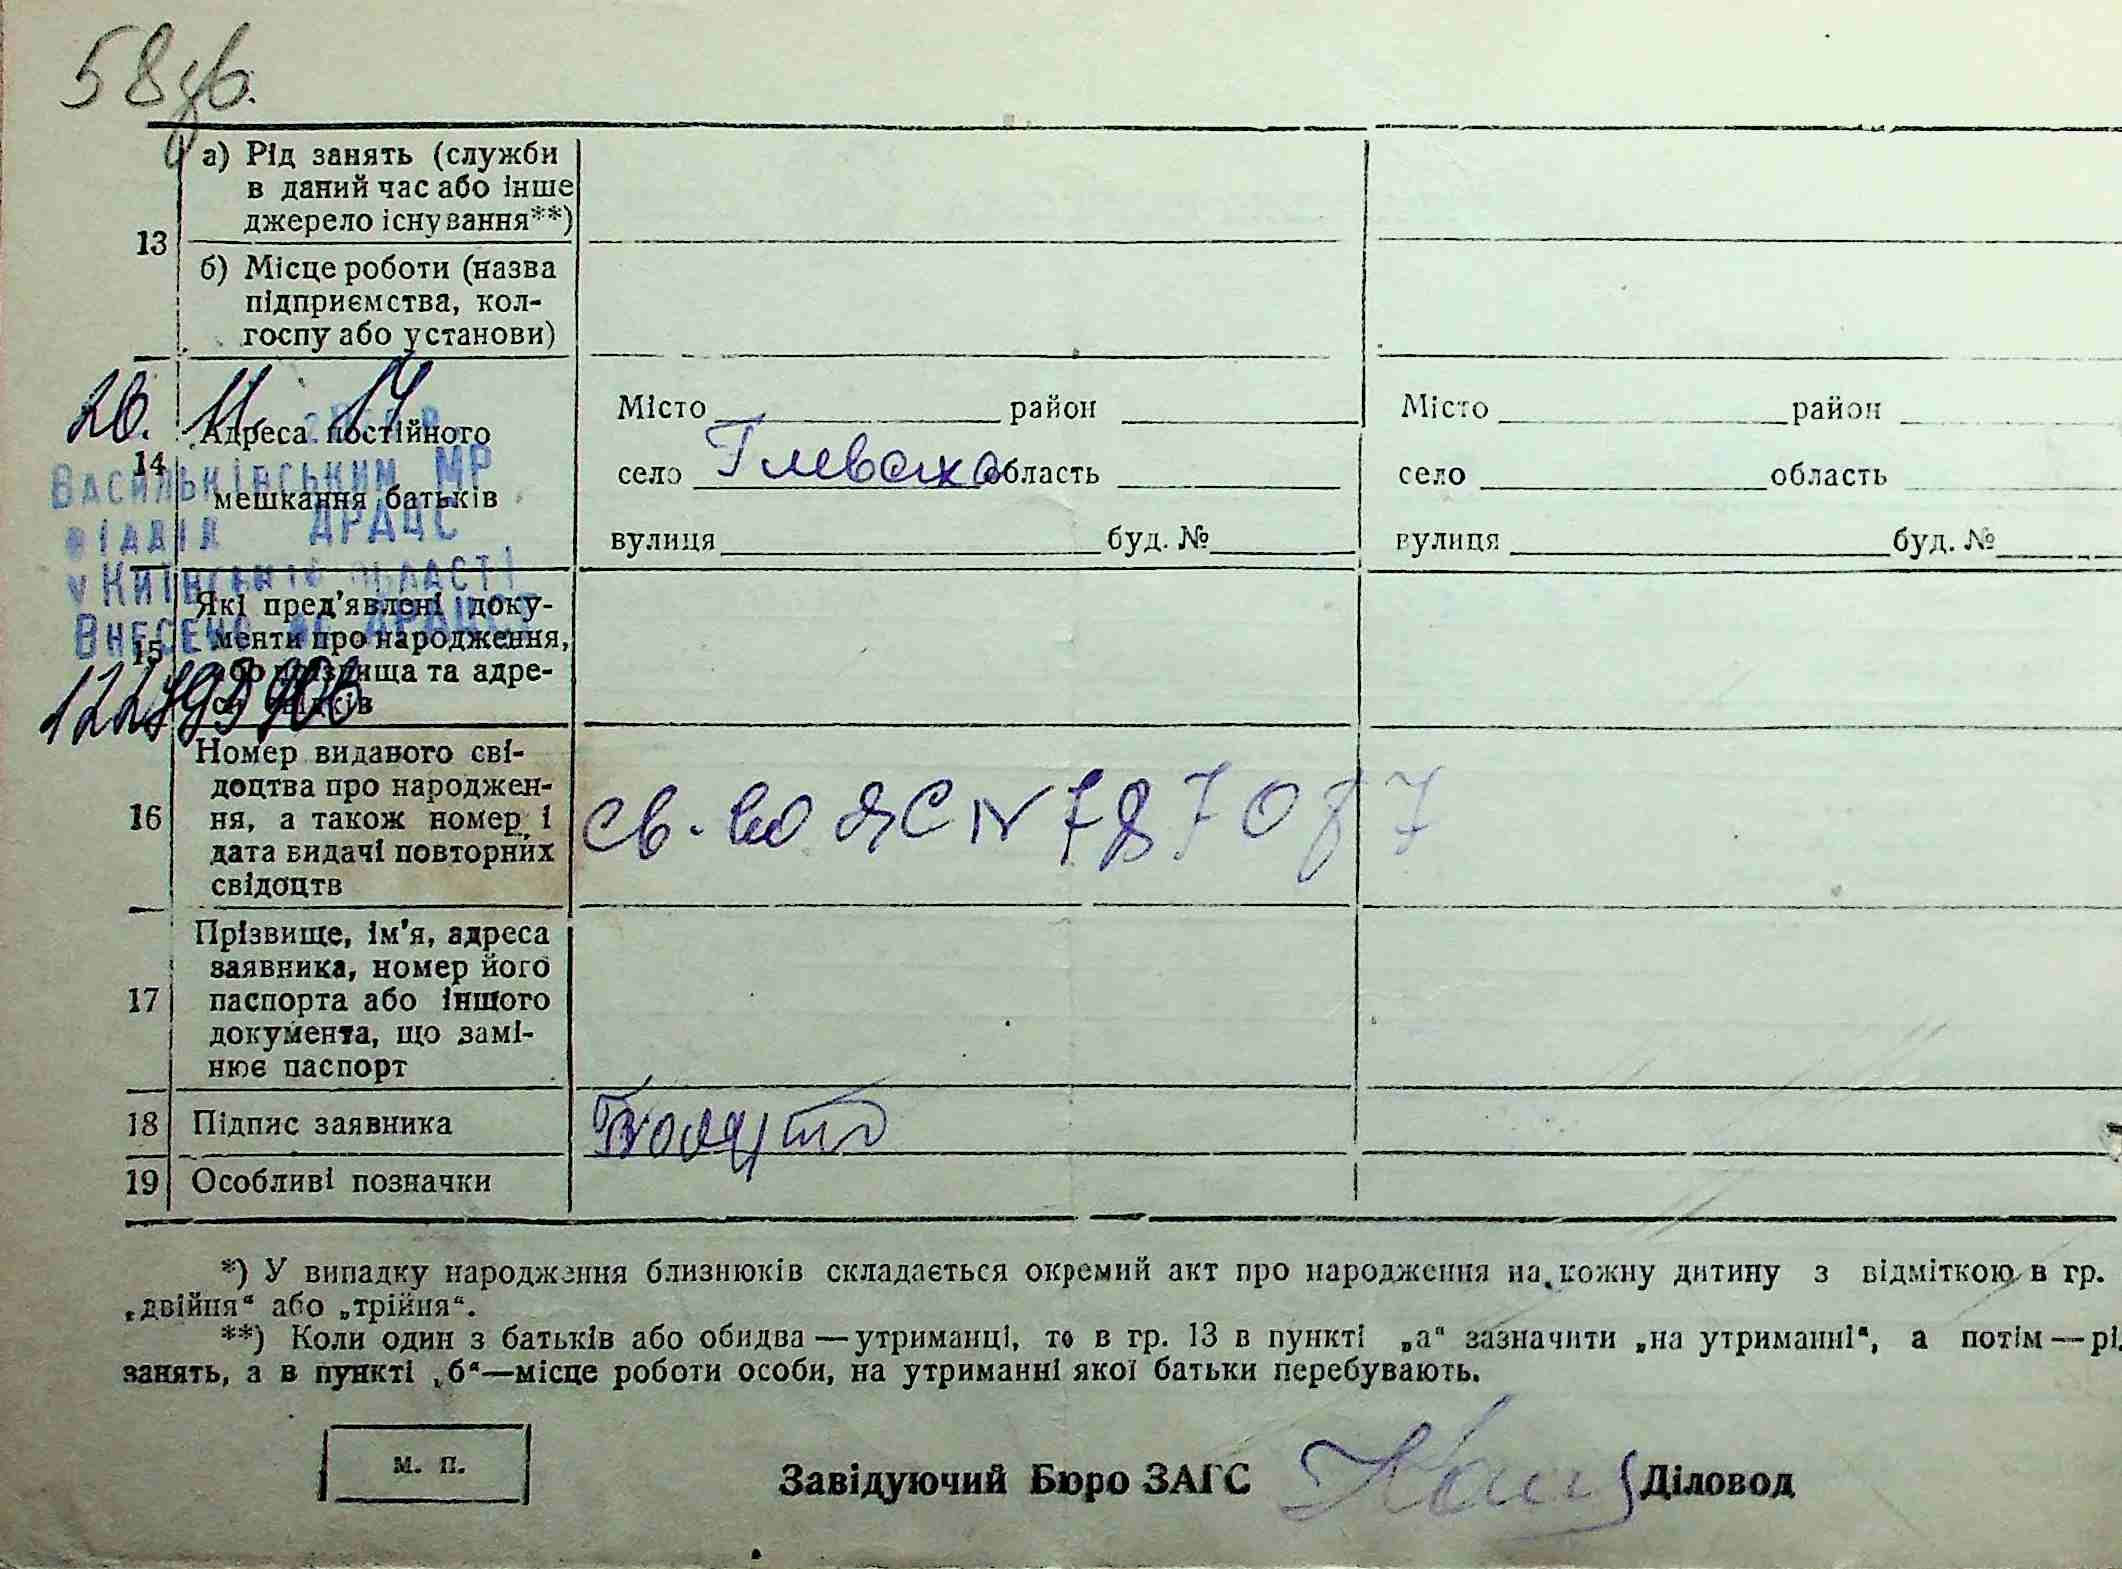 58 зв.
а) Рід занять (служби
в даний час або інше
джерело існування**)
13
б) Місце роботи (назва
підприємства, кол-
госпу або установи)
20. 11. 14
Місто район
Місто район
Адреса постійного
14
село Глеваха область
село область
Васильківським МР
мешкання батьків
відділ ДРАЦС
вулиця буд. №
вулиця буд. №
у Київській області
Які пред'явлені доку-
Внесено до ДРАЦСГ
менти про народження,
15
або прізвища та адре-
си свідків
Номер виданого сві-
доцтва про народжен-
16
ня, а також номер і
св-во ЯС № 787087
дата видачі повторних
свідоцтв
Прізвище, ім'я, адреса
заявника, номер його
17
паспорта або іншого
документа, що замі-
нює паспорт
18 Підпис заявника
19 Особливі позначки
*) У випадку народження близнюків складається окремий акт про народження на кожну дитину з відміткою в гр.
„двійня“ або „трійня“.
**) Коли один з батьків або обидва — утриманці, то в гр. 13 в пункті „а“ зазначити „на утриманні“, а потім — рі
занять, а в пункті „б“—місце роботи особи, на утриманні якої батьки перебувають.
м. п.
Завідуючий Бюро ЗАГС
Діловод